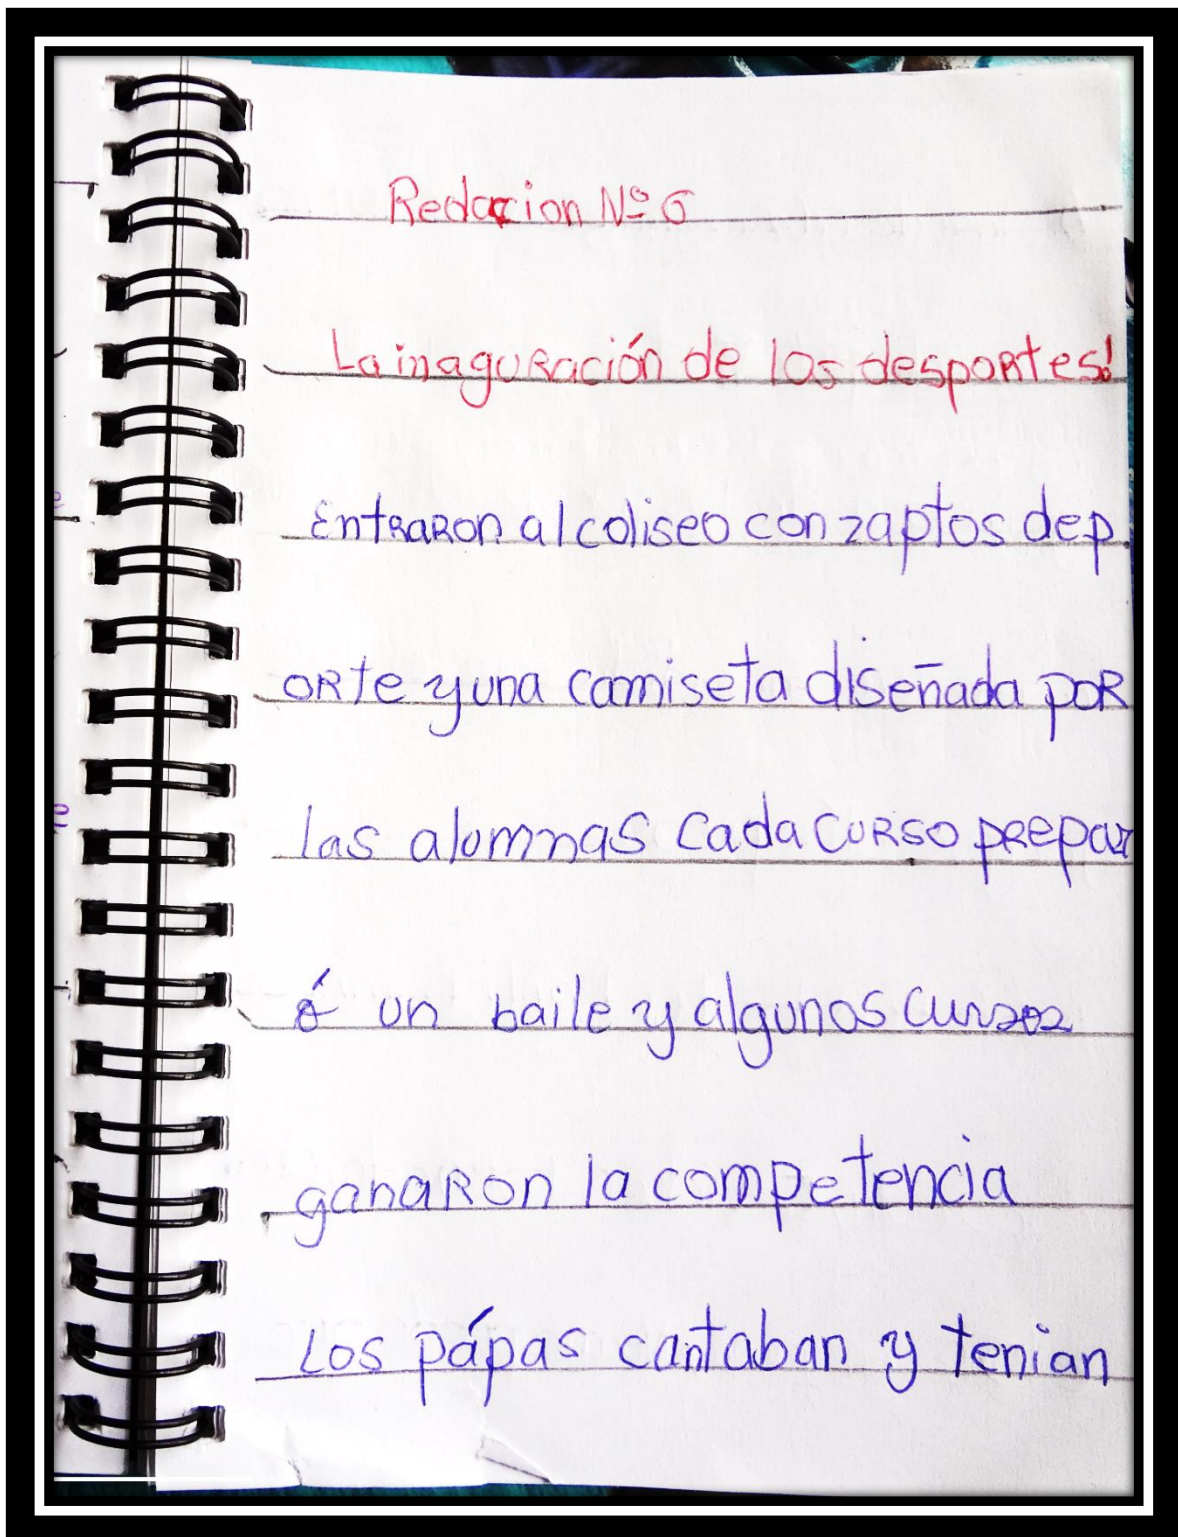 Redaccion Nº 6
La inaguración de los desportes!
Entraron al coliseo con zaptos dep
orte y una camiseta diseñada por
las alumnas cada curso prepar
ó un baile y algunos cursos
ganaron la competencia
Los pápas cantaban y tenian